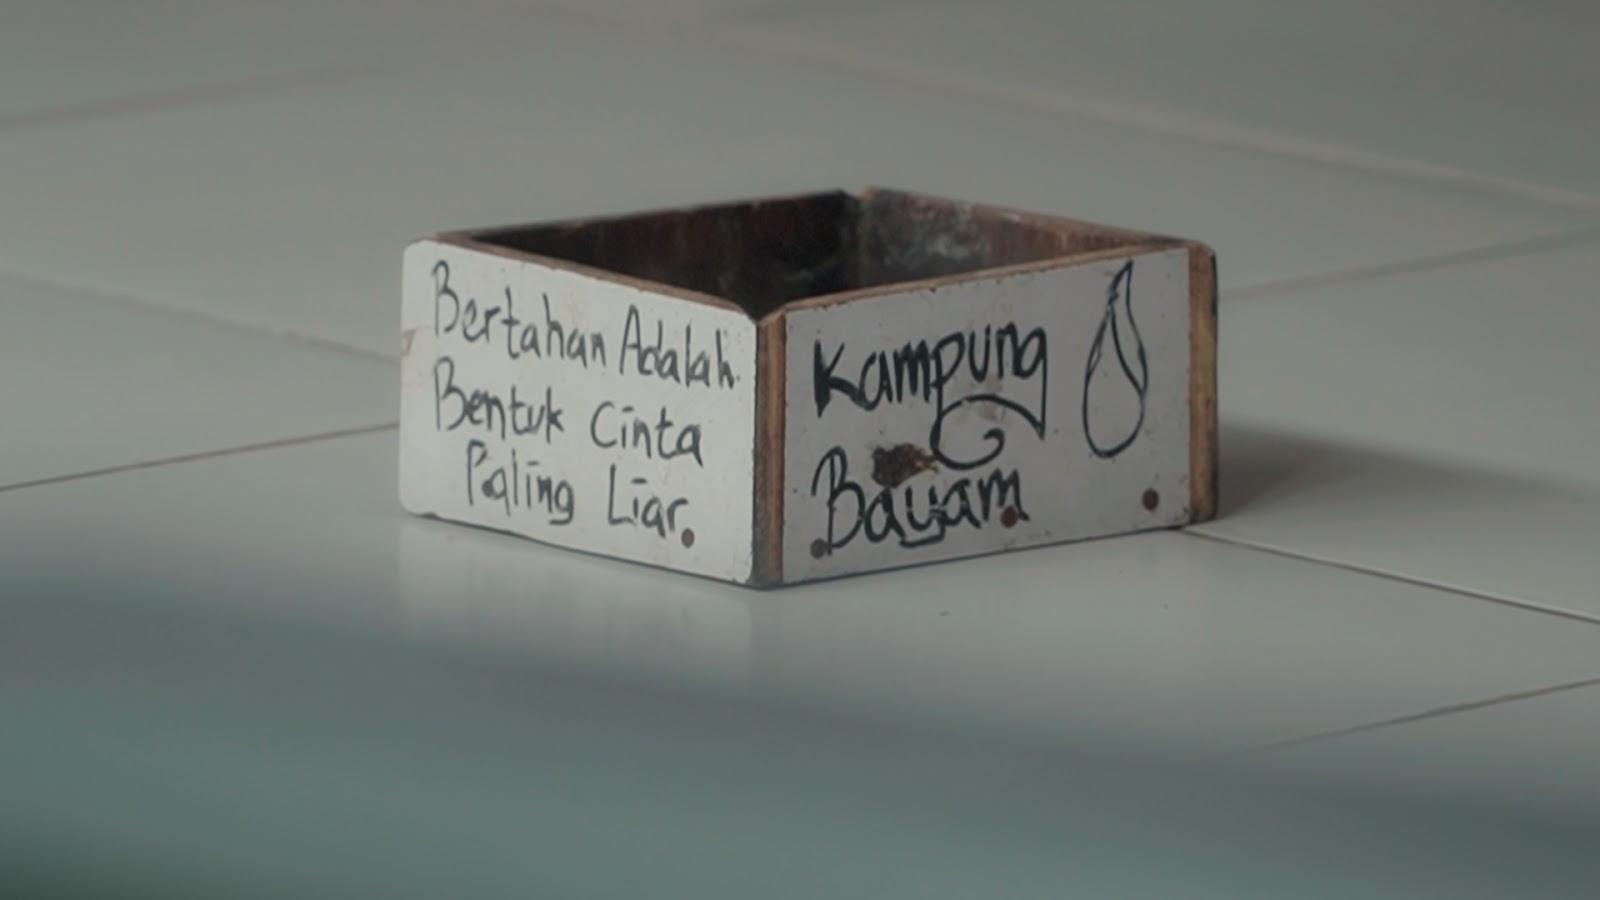 Bertahan Adalah
Bentuk Cinta
Paling Liar.
Kampung
Bayam